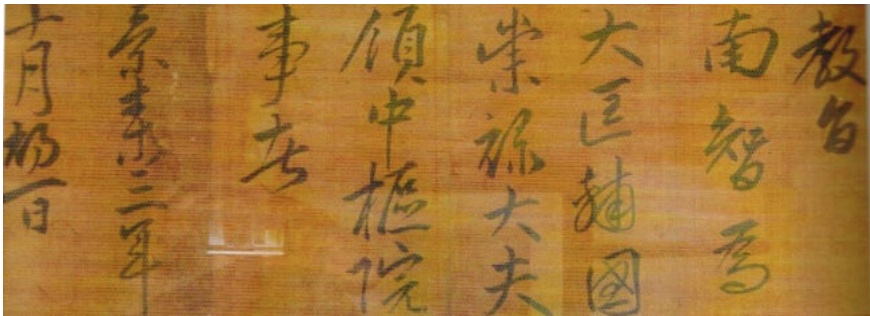 教旨
南智爲
大匡輔國
崇祿大夫
領中樞院
事者
景泰三年
十月初一日